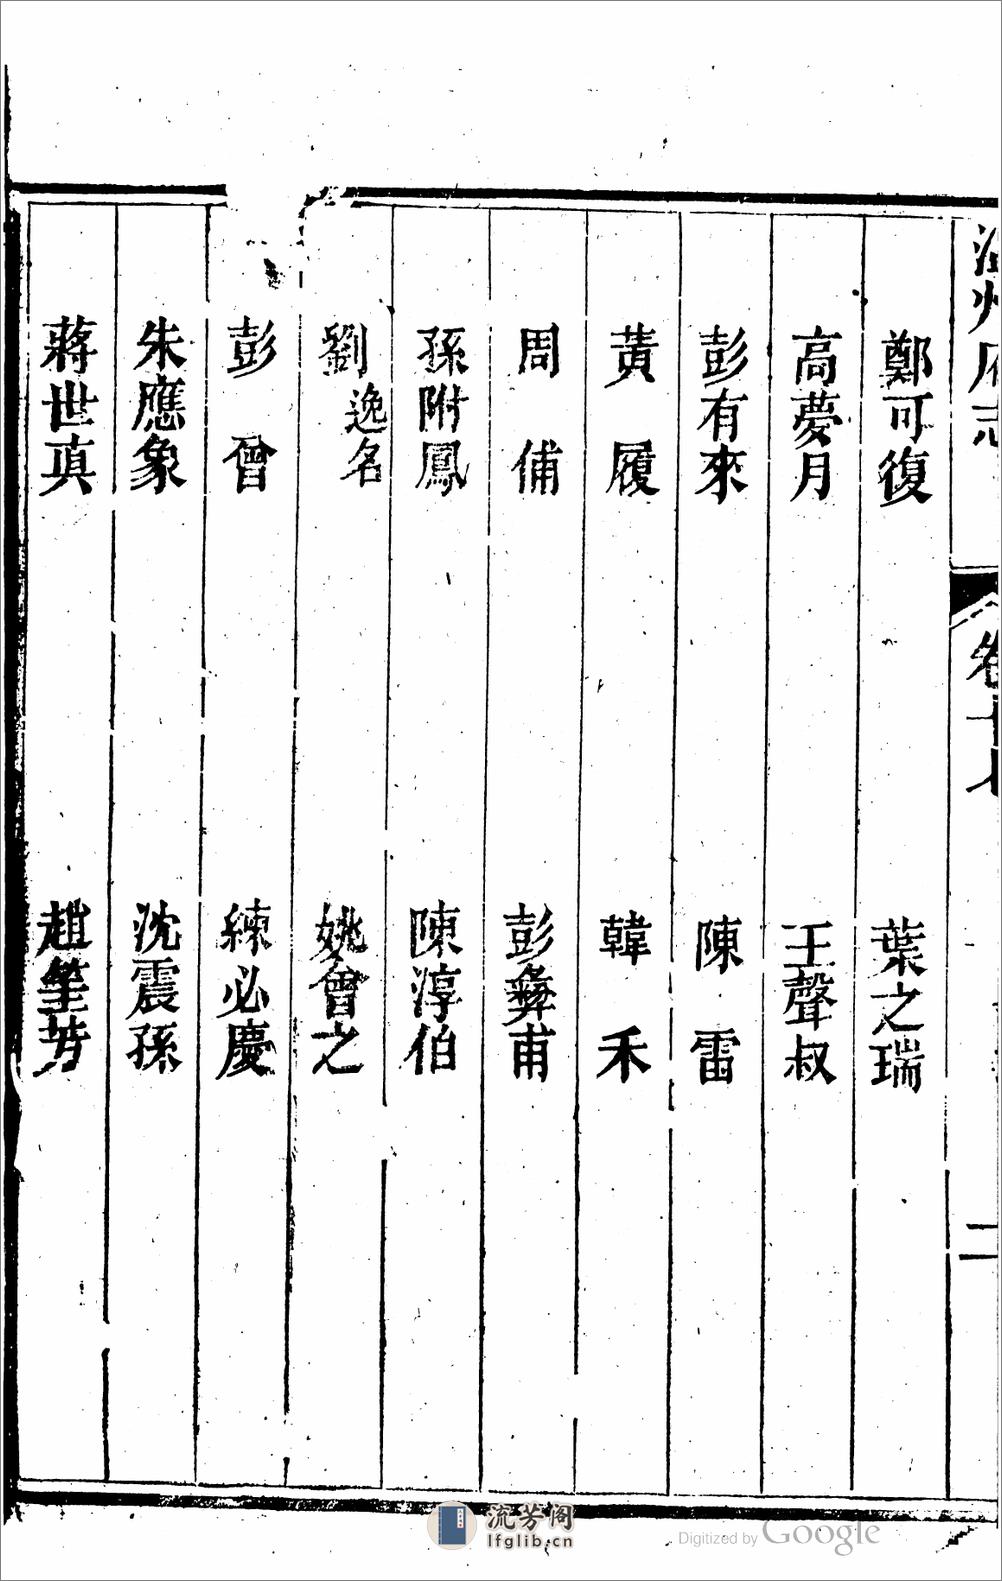 溫州府志 卷十七 二
鄭可復 葉之瑞
高夢月 王聲叔
彭有來 陳雷
黃履 韓禾
周俌 彭彝甫
孫附鳳 陳淳伯
劉逸名 姚會之
彭曾 練必慶
朱應象 沈震孫
蔣世真 趙筀芳
流芳阁
lfglib.cn
Digitized by Google